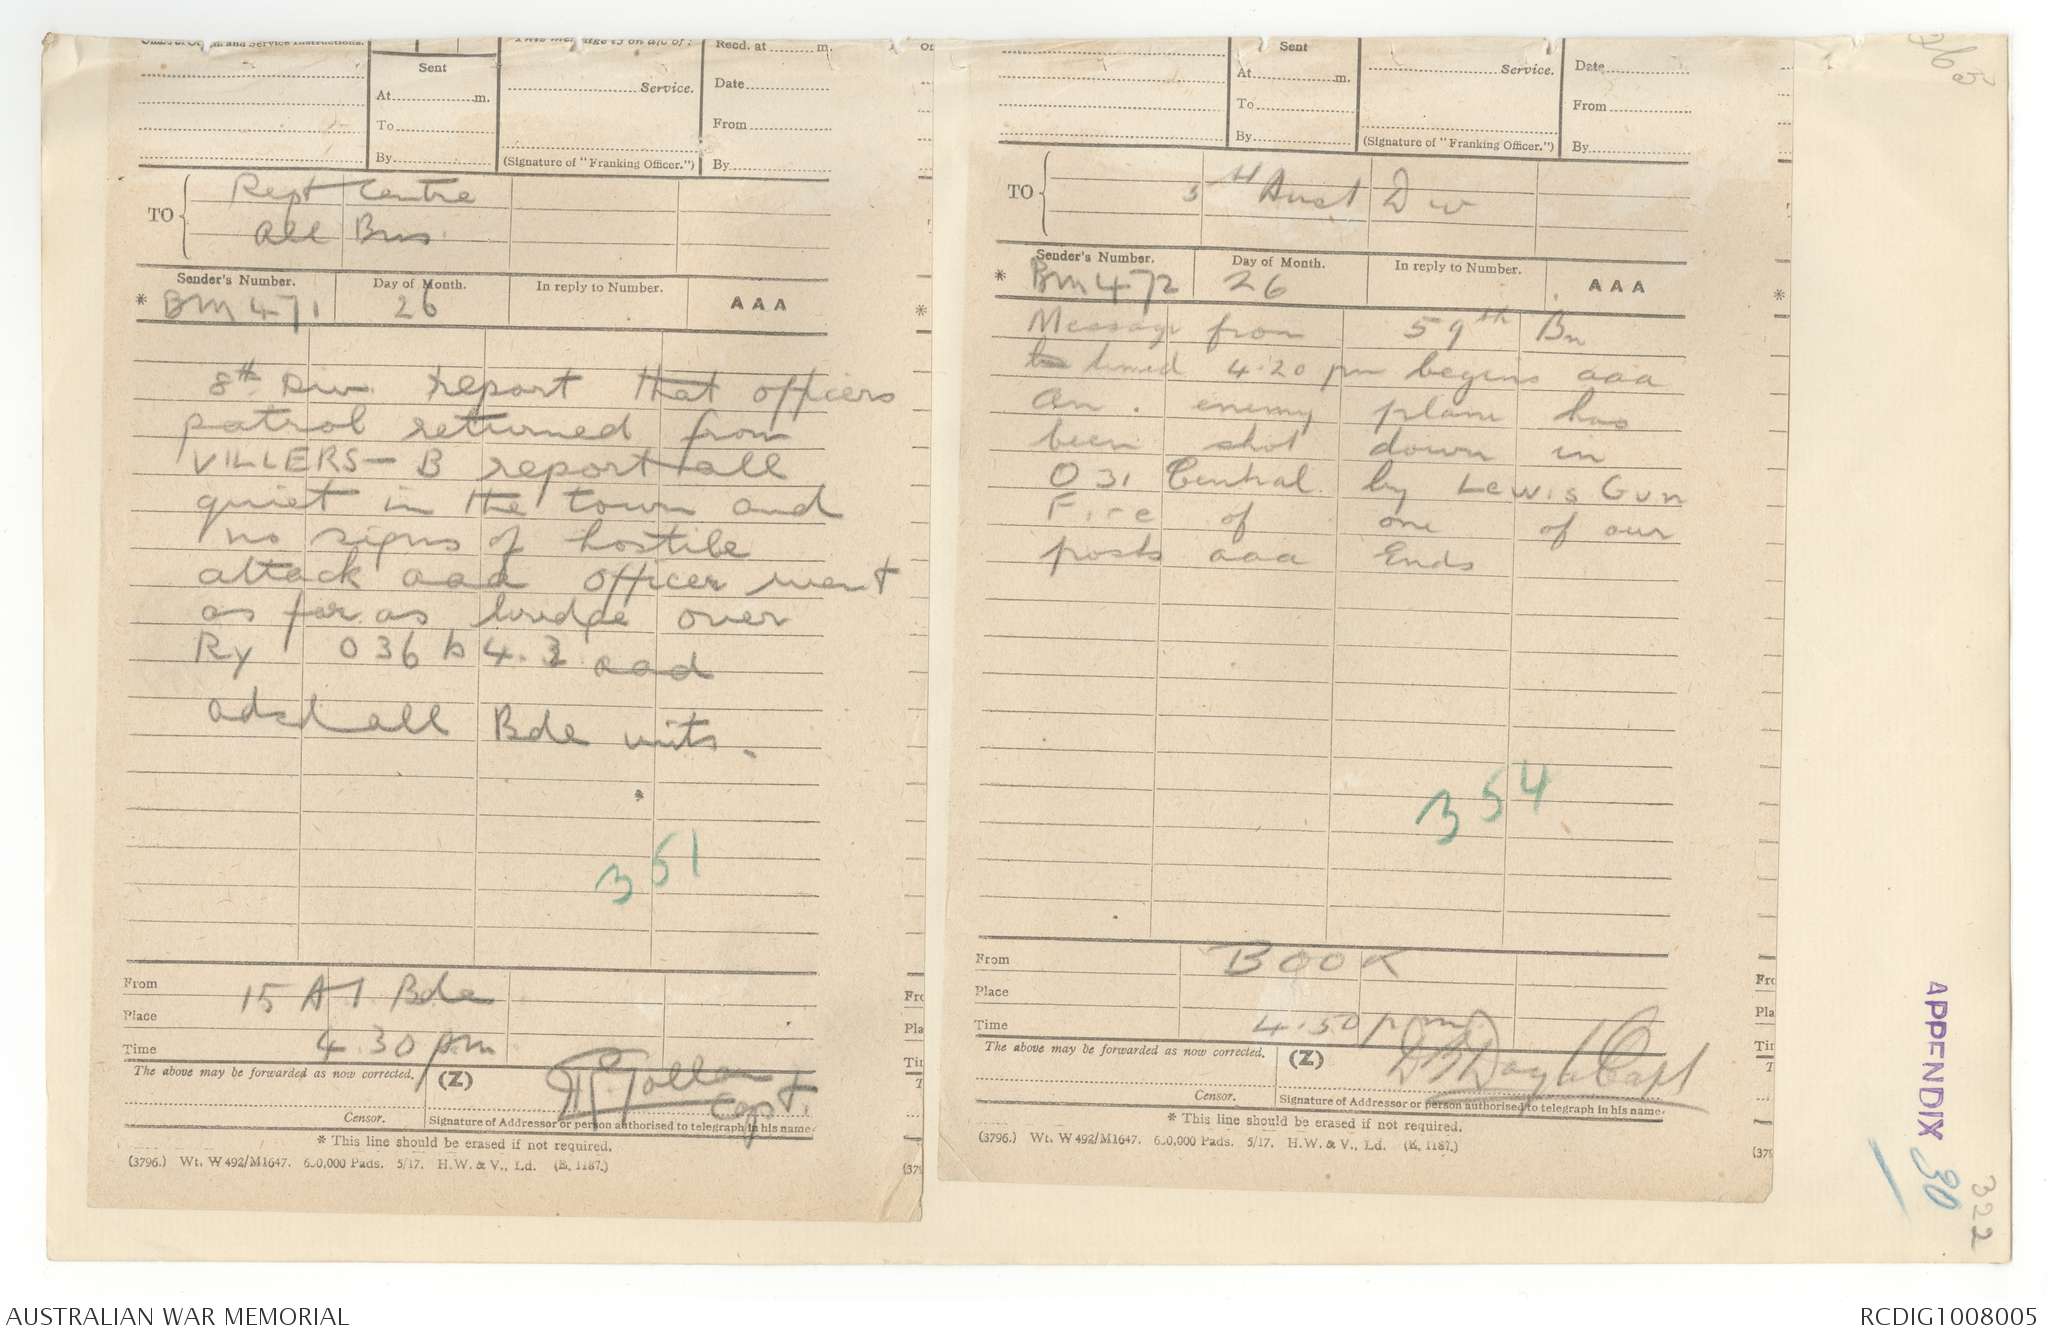 Sent
At..........m.
To..........
By..........
Service.
(Signature of "Franking Officer.")
Recd. at ........ m.
Date..........
From..........
By..........
TO
Rept Centre
all Bns.
Sender's Number.
Day of Month.
In reply to Number.
AAA
* BM 471
26
8th Div. report that officers
patrol returned from
VILLERS-B report all
quiet in the town and
no signs of hostile
attack aaa officer went
as far as bridge over
Ry O 36 b 4.3 aaa
adsd all Bde units.
351
From
15 A I Bde
Place
Time
4.30 pm
The above may be forwarded as now corrected.
(Z)
Capt.
Censor.
Signature of Addressor or person authorised to telegraph in his name.
* This line should be erased if not required.
(3796.) Wt. W492/M1647. 600,000 Pads. 5/17. H.W. & V., Ld. (E. 1187.)
Sent
At..........m.
To..........
By..........
Service.
(Signature of "Franking Officer.")
Date..........
From..........
By..........
TO
5th Aust Div
Sender's Number.
Day of Month.
In reply to Number.
AAA
* BM 472
26
Message from 59th Bn
timed 4.20 pm begins aaa
An. enemy plane has
been shot down in
O 31 Central by Lewis Gun
Fire of one of our
posts aaa Ends
354
From
BOOK
Place
Time
4.50 pm
The above may be forwarded as now corrected.
(Z)
Capt
Censor.
Signature of Addressor or person authorised to telegraph in his name.
* This line should be erased if not required.
(3796.) Wt. W492/M1647. 600,000 Pads. 5/17. H.W. & V., Ld. (E. 1187.)
APPENDIX 30
322
AUSTRALIAN WAR MEMORIAL
RCDIG1008005